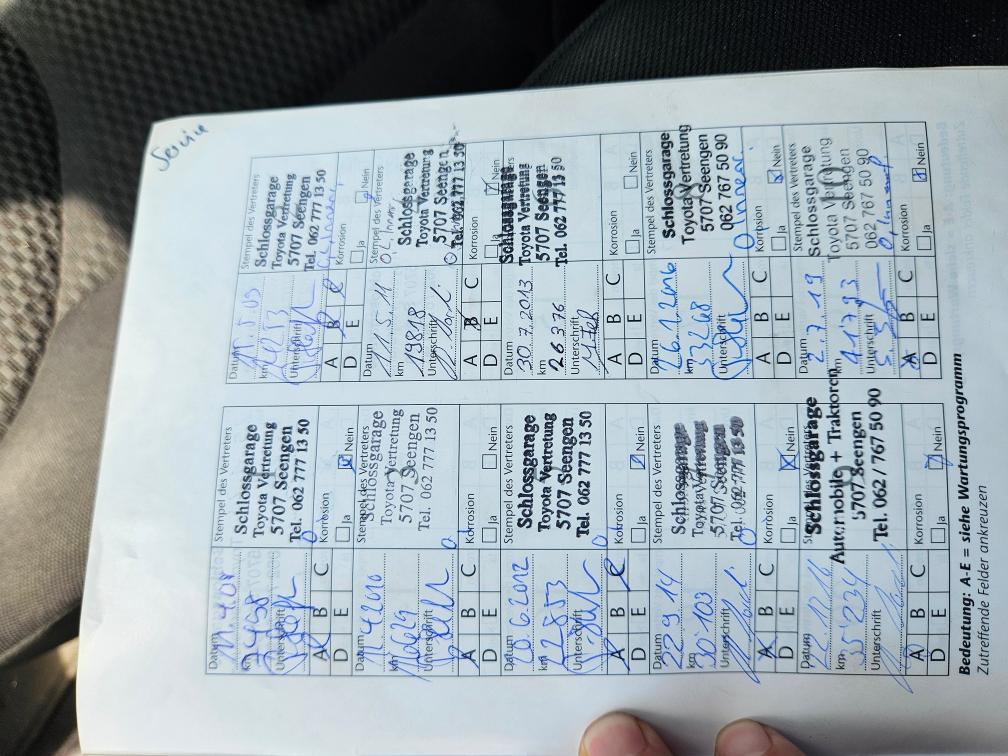 Service
Datum
Stempel des Vertreters
Schlossgarage
Toyota Vertretung
5707 Seengen
Tel. 062 777 13 50
km
Unterschrift
A B C
D E
Korrosion
Ja Nein
Datum
Stempel des Vertreters
Schlossgarage
Toyota Vertretung
5707 Seengen
Tel. 062 777 13 50
km
Unterschrift
A B C
D E
Korrosion
Ja Nein
Datum
20.6.2012
Stempel des Vertreters
Schlossgarage
Toyota Vertretung
5707 Seengen
Tel. 062 777 13 50
km
22853
A B C
D E
Korrosion
Ja Nein
Datum
22 9 14
Stempel des Vertreters
Schlossgarage
Toyota Vertretung
5707 Seengen
Tel. 062 777 13 50
km
30'103
Unterschrift
A B C
D E
Korrosion
Ja Nein
Datum
22.12.16
Stempel des Vertreters
Schlossgarage
Automobile + Traktoren
5707 Seengen
Tel. 062 / 767 50 90
km
35'234
Unterschrift
A B C
D E
Korrosion
Ja Nein
Datum
Stempel des Vertreters
Schlossgarage
Toyota Vertretung
5707 Seengen
Tel. 062 777 13 50
km
Unterschrift
A B C
D E
Korrosion
Ja Nein
Datum
11.5.11
Stempel des Vertreters
Schlossgarage
Toyota Vertretung
5707 Seengen
Tel. 062 777 13 50
km
19818
Unterschrift
A B C
D E
Korrosion
Ja Nein
Datum
30.7.2013
Stempel des Vertreters
Schlossgarage
Toyota Vertretung
5707 Seengen
Tel. 062 777 13 50
km
26376
Unterschrift
A B C
D E
Korrosion
Ja Nein
Datum
26.1.2016
Stempel des Vertreters
Schlossgarage
Toyota Vertretung
5707 Seengen
062 767 50 90
km
33268
Unterschrift
A B C
D E
Korrosion
Ja Nein
Datum
2.7.19
Stempel des Vertreters
Schlossgarage
Toyota Vertretung
5707 Seengen
062 767 50 90
km
41793
Unterschrift
A B C
D E
Korrosion
Ja Nein
Bedeutung: A-E = siehe Wartungsprogramm
Zutreffende Felder ankreuzen